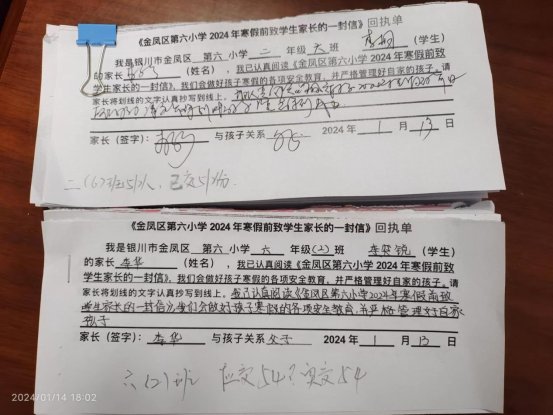 《金凤区第六小学 2024 年寒假前致学生家长的一封信》回执单
我是银川市金凤区 第六 小学 二 年级 六 班 (学生)
的家长 (姓名)，我已认真阅读《金凤区第六小学 2024 年寒假前致
学生家长的一封信》。我们会做好孩子寒假的各项安全教育，并严格管理好自家的孩子。请
家长将划线的文字认真抄写到线上。
家长（签字）： 与孩子关系 2024 年 1 月 13 日
二（6）班51人，已交51份.
《金凤区第六小学 2024 年寒假前致学生家长的一封信》回执单
我是银川市金凤区 第六 小学 六 年级(2) 班 (学生)
的家长 李华 (姓名)，我已认真阅读《金凤区第六小学 2024 年寒假前致
学生家长的一封信》。我们会做好孩子寒假的各项安全教育，并严格管理好自家的孩子。请
家长将划线的文字认真抄写到线上。我已认真阅读《金凤区第六小学2024年寒假前致
学生家长的一封信》我们会做好孩子寒假的各项安全教育，并严格管理好自家
孩子
家长（签字）： 李华 与孩子关系 父子 2024 年 1 月 13 日
六（2）班 应交54 实交54
2024/01/14 18:02